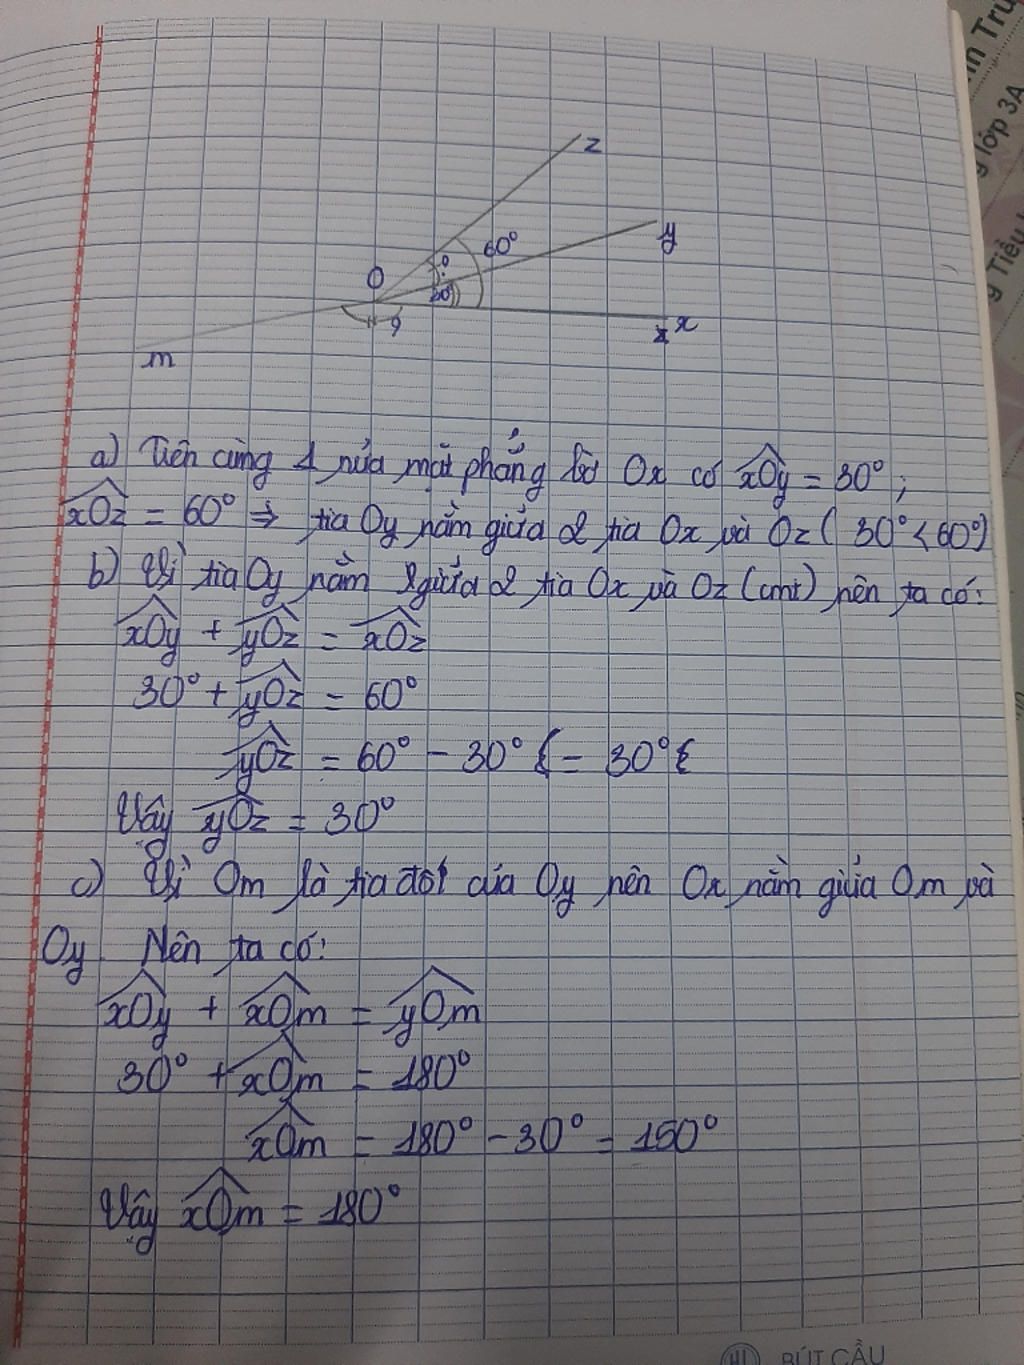 z
60°
y
O
?
30°
?
x
m
a) Trên cùng 1 nửa mặt phẳng bờ Ox có xOy = 30° ;
xOz = 60° ⇒ tia Oy nằm giữa 2 tia Ox và Oz ( 30° < 60°)
b) Vì tia Oy nằm giữa 2 tia Ox và Oz (cmt) nên ta có:
xOy + yOz = xOz
30° + yOz = 60°
yOz = 60° - 30° {= 30°{
Vậy yOz = 30°
c) Vì Om là tia đối của Oy nên Ox nằm giữa Om và
Oy. Nên ta có:
xOy + xOm = yOm
30° + xOm = 180°
xOm = 180° - 30° = 150°
Vậy xOm = 180°
BÚT CẦU
lớp 3A
Tiểu